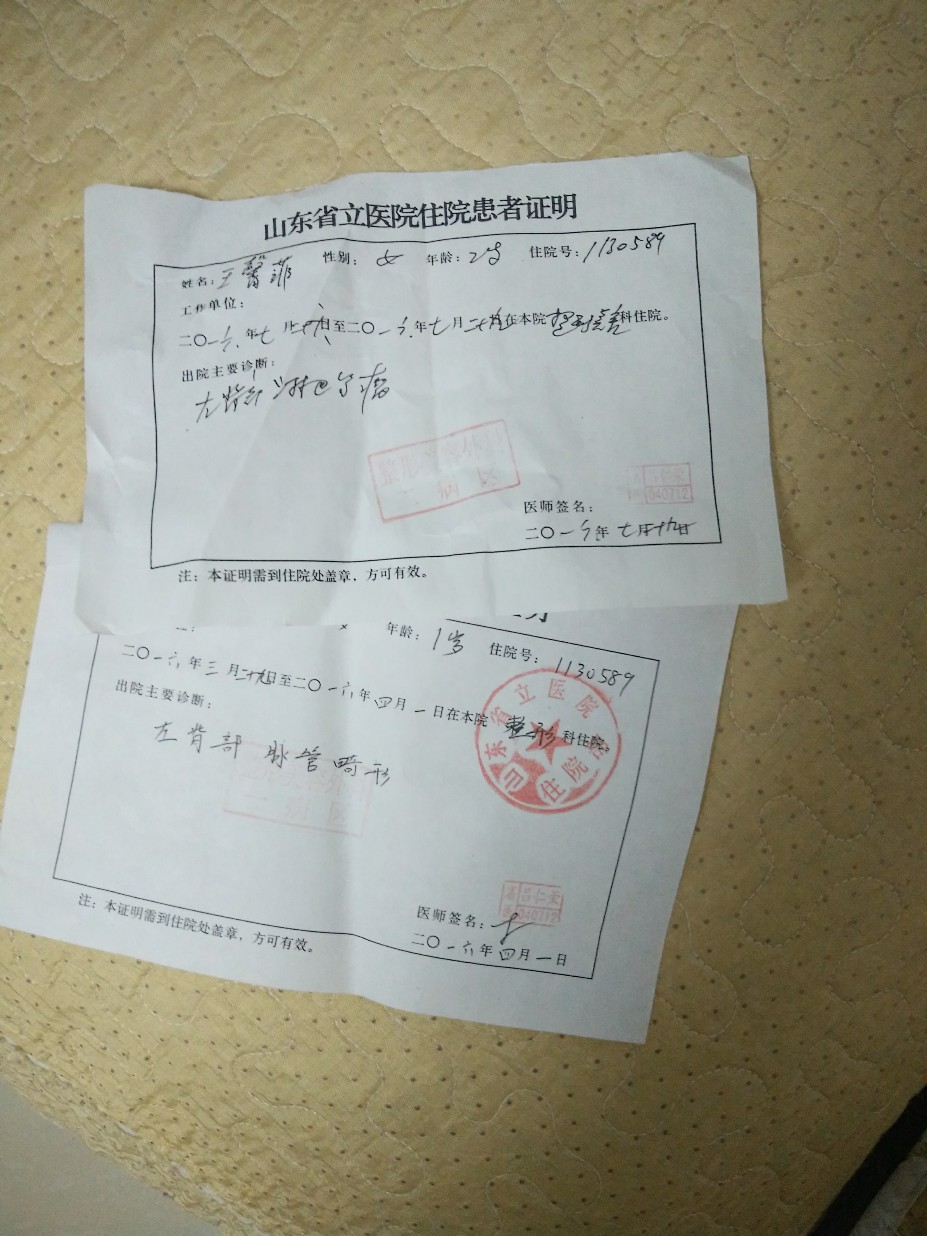 山东省立医院住院患者证明
姓名：王馨菲 性别：女 年龄：2岁 住院号：1130589
工作单位：
二〇一六年七月 日至二〇一六年七月 在本院 科住院。
出院主要诊断：
左背部淋巴管瘤
整形 外
二病区
吕仁荣
040712
医师签名：
二〇一六年七月 日
注：本证明需到住院处盖章，方可有效。
年龄：1岁 住院号：1130589
二〇一六年三月 日至二〇一六年四月一日在本院整形科住院。
出院主要诊断：
左背部脉管畸形
东省立医院
住院
省吕仁荣
040712
医师签名：
二〇一六年四月一日
注：本证明需到住院处盖章，方可有效。